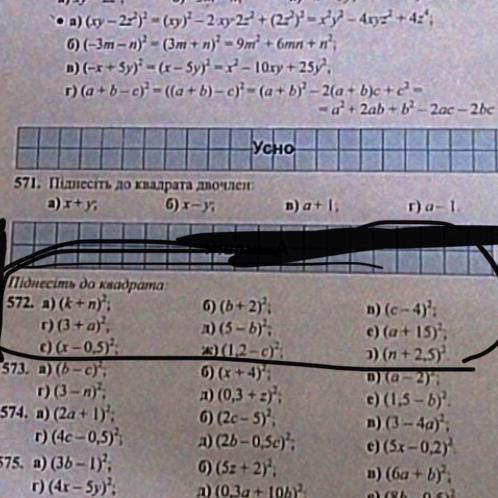 • а) (xy – 2z²)² = (xy)² – 2·xy·2z² + (2z²)² = x²y² – 4xyz² + 4z⁴;
б) (–3m – n)² = (3m + n)² = 9m² + 6mn + n²;
в) (–x + 5y)² = (x – 5y)² = x² – 10xy + 25y²;
г) (a + b – c)² = ((a + b) – c)² = (a + b)² – 2(a + b)c + c² =
= a² + 2ab + b² – 2ac – 2bc
Усно
571. Піднесіть до квадрата двочлен:
а) x + y; б) x – y; в) a + 1; г) a – 1.
Піднесіть до квадрата:
572. а) (k + n)²; б) (b + 2)²; в) (c – 4)²;
г) (3 + a)²; д) (5 – b)²; е) (a + 15)²;
є) (x – 0,5)²; ж) (1,2 – c)²; з) (n + 2,5)².
573. а) (b – c)²; б) (x + 4)²; в) (a – 2)²;
г) (3 – n)²; д) (0,3 + z)²; е) (1,5 – b)².
574. а) (2a + 1)²; б) (2c – 5)²; в) (3 – 4a)²;
г) (4c – 0,5)²; д) (2b – 0,5c)²; е) (5x – 0,2)².
575. а) (3b – 1)²; б) (5z + 2)²; в) (6a + b)²;
г) (4x – 5y)²; д) (0,3a + 10b)²;